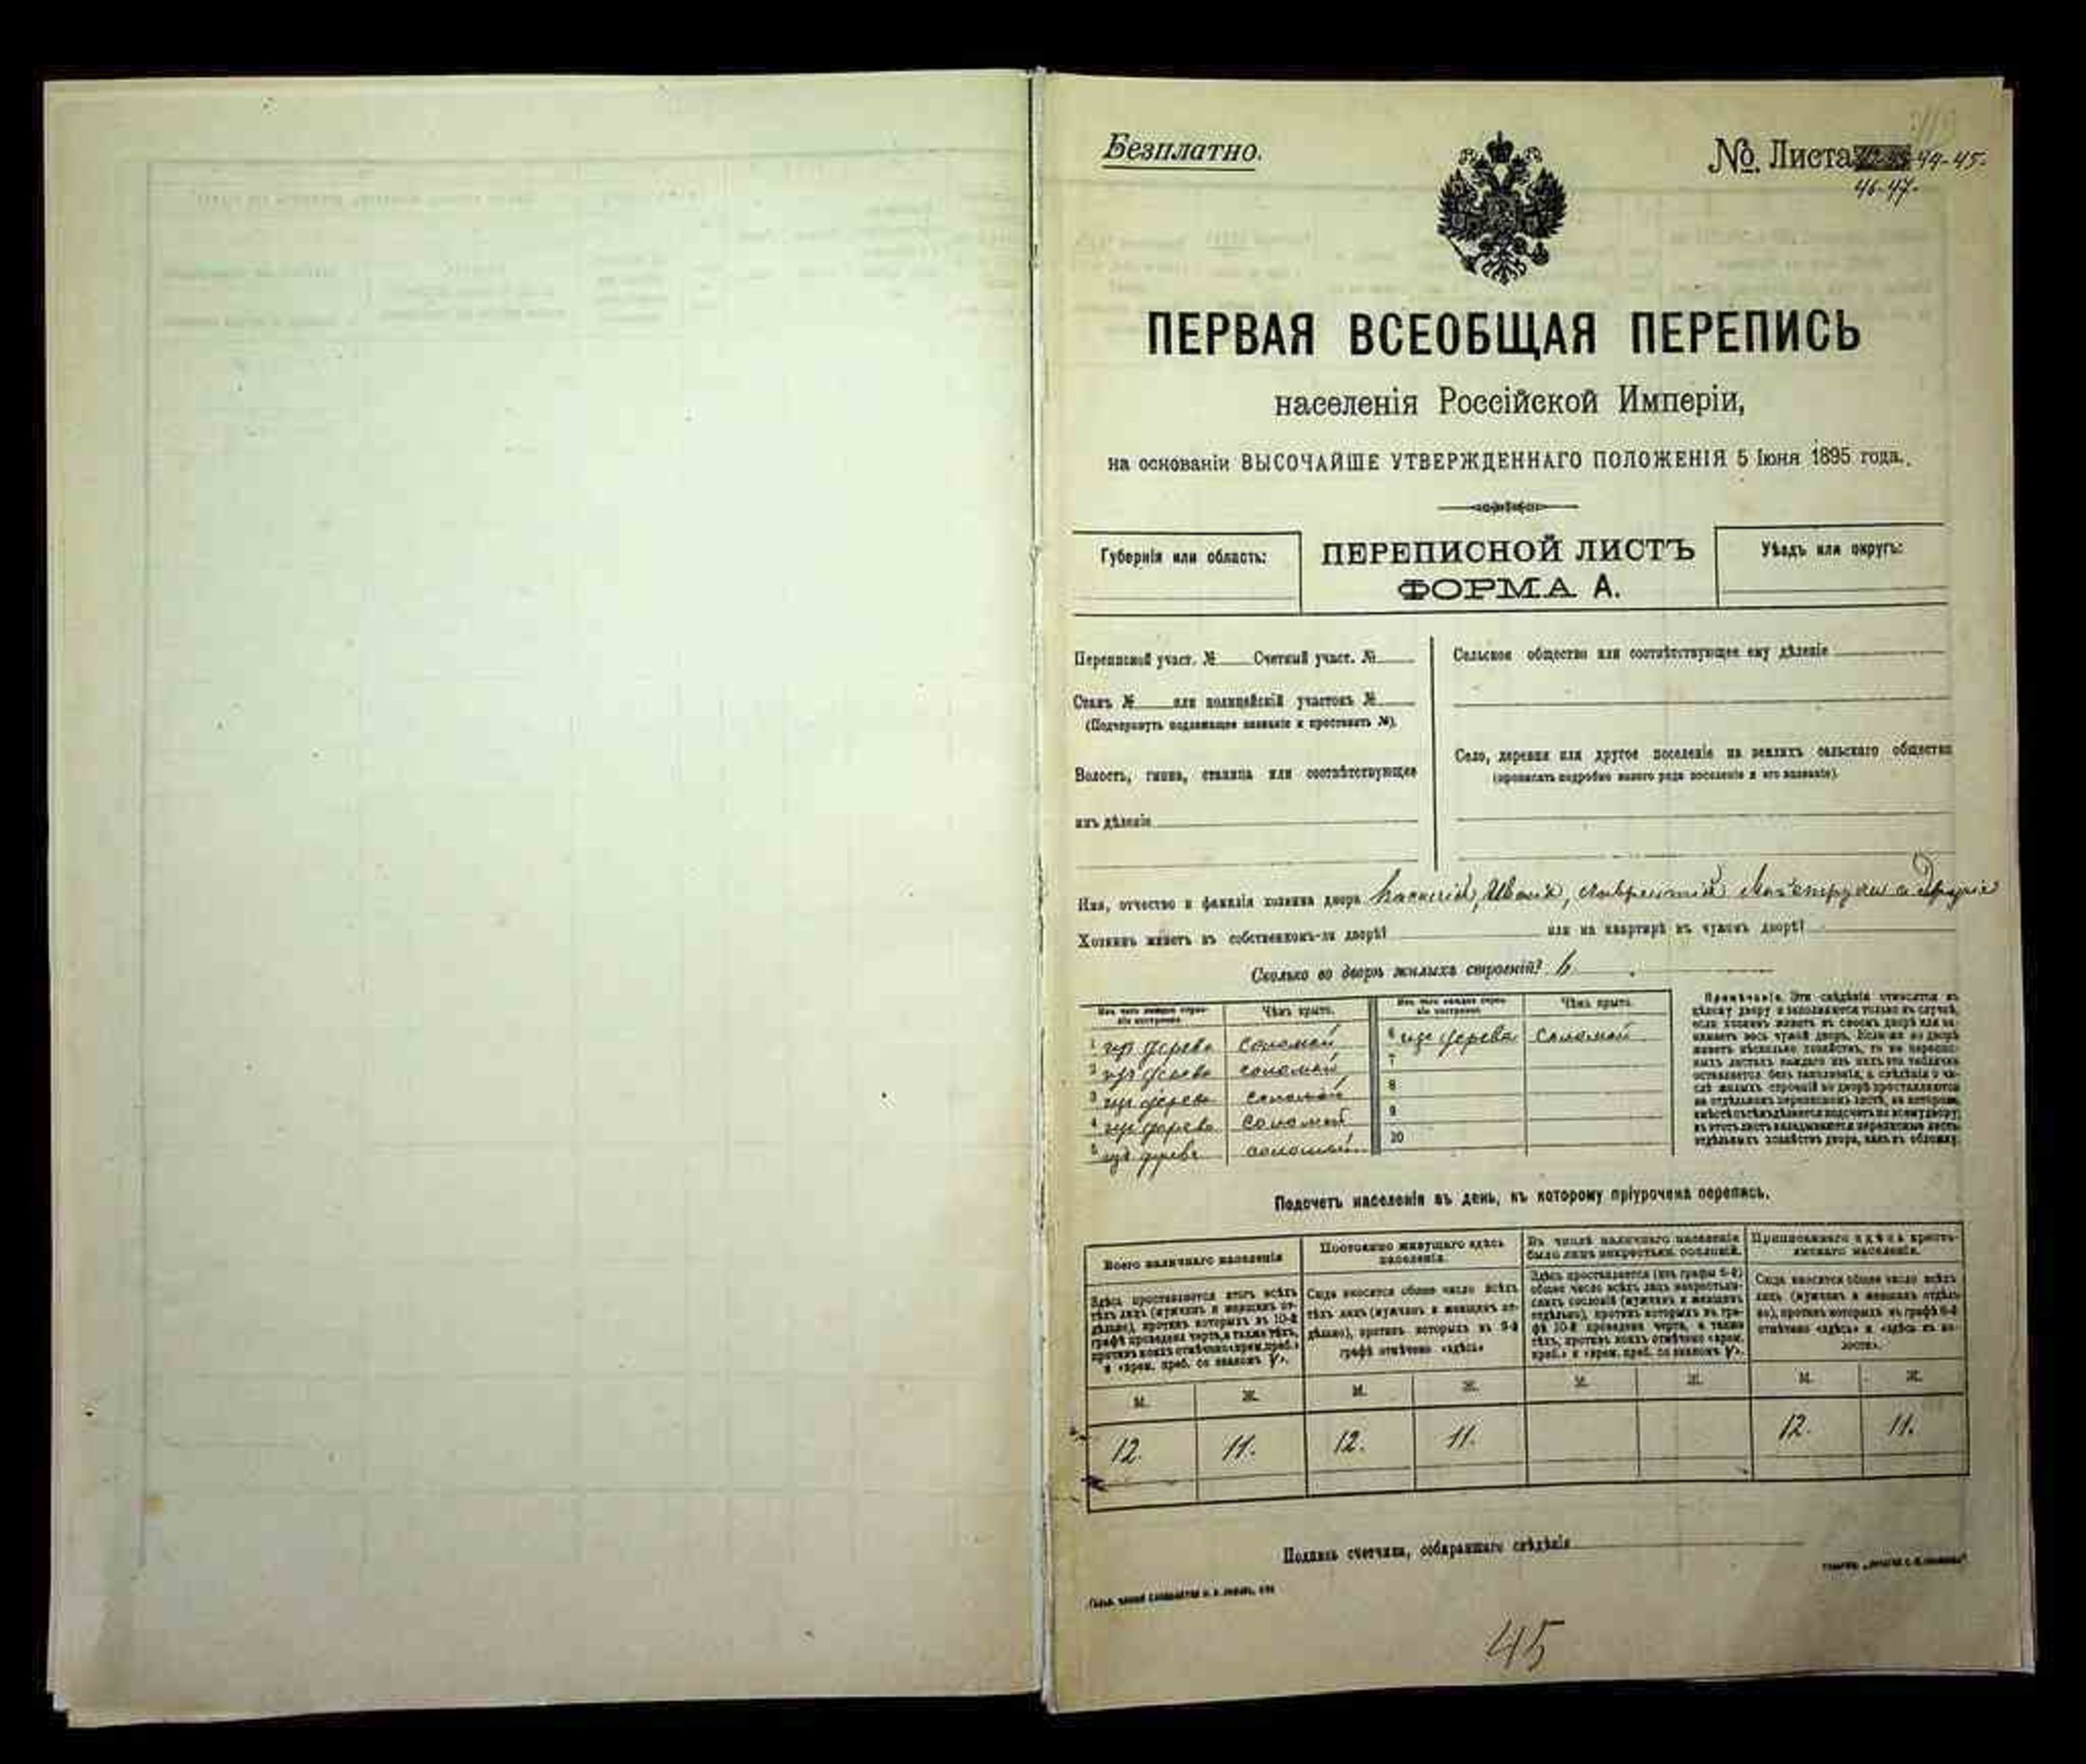 Безплатно.
№ Листа 44-45.
46-47.
ПЕРВАЯ ВСЕОБЩАЯ ПЕРЕПИСЬ
населенія Россійской Имперіи,
на основаніи ВЫСОЧАЙШЕ УТВЕРЖДЕННАГО ПОЛОЖЕНІЯ 5 Іюня 1895 года.
Губернія или область:
ПЕРЕПИСНОЙ ЛИСТЪ
ФОРМА А.
Уѣздъ или округъ:
Переписной участ. № Счетный участ. №
Станъ № или полицейскій участокъ №
(Подчеркнуть подлежащее названіе и проставить №).
Волость, гмина, станица или соотвѣтствующее
имъ дѣленіе
Сельское общество или соотвѣтствующее ему дѣленіе
Село, деревня или другое поселеніе на земляхъ сельскаго общества
(прописать подробно какого рода поселеніе и его названіе).
Имя, отчество и фамилія хозяина двора Иванъ, Лаврентій
Хозяинъ живетъ въ собственномъ-ли дворѣ? или на квартирѣ въ чужомъ дворѣ?
Сколько во дворѣ жилыхъ строеній? 6
Изъ чего каждое строе-
ніе построено.
Чѣмъ крыто.
1 изъ дерева соломой
2 изъ дерева соломой
3 изъ дерева соломой
4 изъ дерева соломой
5 изъ дерева соломой
Изъ чего каждое строе-
ніе построено.
Чѣмъ крыто.
6 изъ дерева Соломой
7
8
9
10
Примѣчаніе. Эти свѣдѣнія относятся къ
цѣлому двору и заполняются только въ случаѣ,
если хозяинъ живетъ въ своемъ дворѣ или за-
нимаетъ весь чужой дворъ. Если же во дворѣ
живетъ нѣсколько хозяйствъ, то на перепис-
ныхъ листахъ каждаго изъ нихъ эта табличка
оставляется безъ заполненія, а свѣдѣнія о чи-
слѣ жилыхъ строеній во дворѣ проставляются
на отдѣльномъ переписномъ листѣ, на которомъ
вмѣстѣ съ тѣмъ дѣлается подсчетъ по всему двору;
въ этотъ листъ вкладываются переписные листы
отдѣльныхъ хозяйствъ двора, какъ въ обложку.
Подсчетъ населенія въ день, къ которому пріурочена перепись.
Всего наличнаго населенія
Здѣсь проставляется итогъ всѣхъ
тѣхъ лицъ (мужчинъ и женщинъ от-
дѣльно), противъ которыхъ въ 10-й
графѣ проведена черта, а также тѣхъ,
противъ коихъ отмѣчено «врем. преб.»
и «врем. преб. со знакомъ V».
Постоянно живущаго здѣсь
населенія.
Сюда вносится общее число всѣхъ
тѣхъ лицъ (мужчинъ и женщинъ от-
дѣльно), противъ которыхъ въ 9-й
графѣ отмѣчено «здѣсь»
Въ числѣ наличнаго населенія
было лицъ некрестьян. сословій.
Здѣсь проставляется (изъ графы 6-й)
общее число всѣхъ лицъ некрестьян-
скихъ сословій (мужчинъ и женщинъ
отдѣльно), противъ которыхъ въ гра-
фѣ 10-й проведена черта, а также
тѣхъ, противъ коихъ отмѣчено «врем.
преб.» и «врем. преб. со знакомъ V».
Приписаннаго здѣсь кресть-
янскаго населенія.
Сюда вносится общее число всѣхъ
лицъ (мужчинъ и женщинъ отдѣль-
но), противъ которыхъ въ графѣ 8-й
отмѣчено «здѣсь» и «здѣсь въ во-
лости».
М. Ж. М. Ж. М. Ж. М. Ж.
12. 11. 12. 11. 12. 11.
Подпись счетчика, собиравшаго свѣдѣнія
45